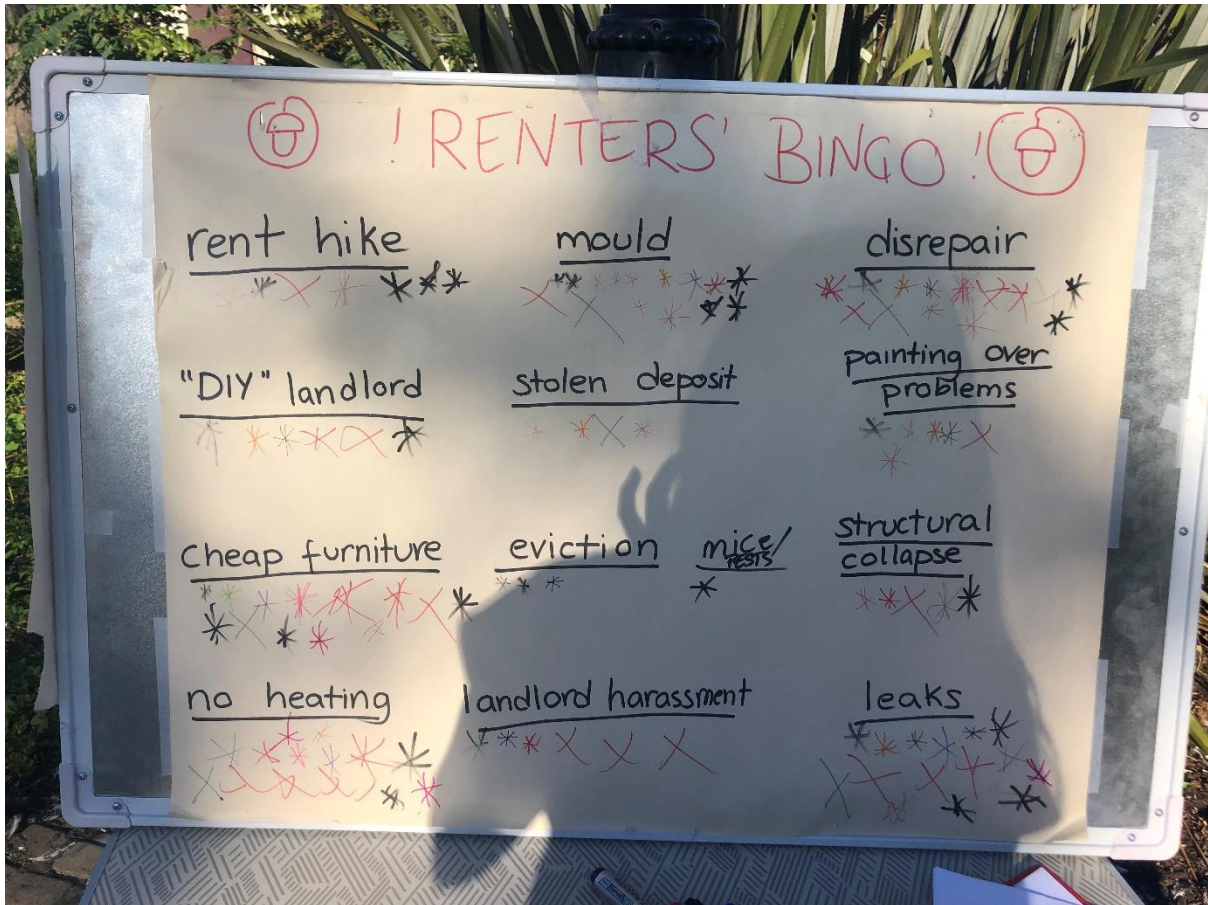 ! RENTERS' BINGO !
rent hike
mould
disrepair
"DIY" landlord
stolen deposit
painting over
problems
cheap furniture
eviction
mice/
PESTS
structural
collapse
no heating
landlord harassment
leaks